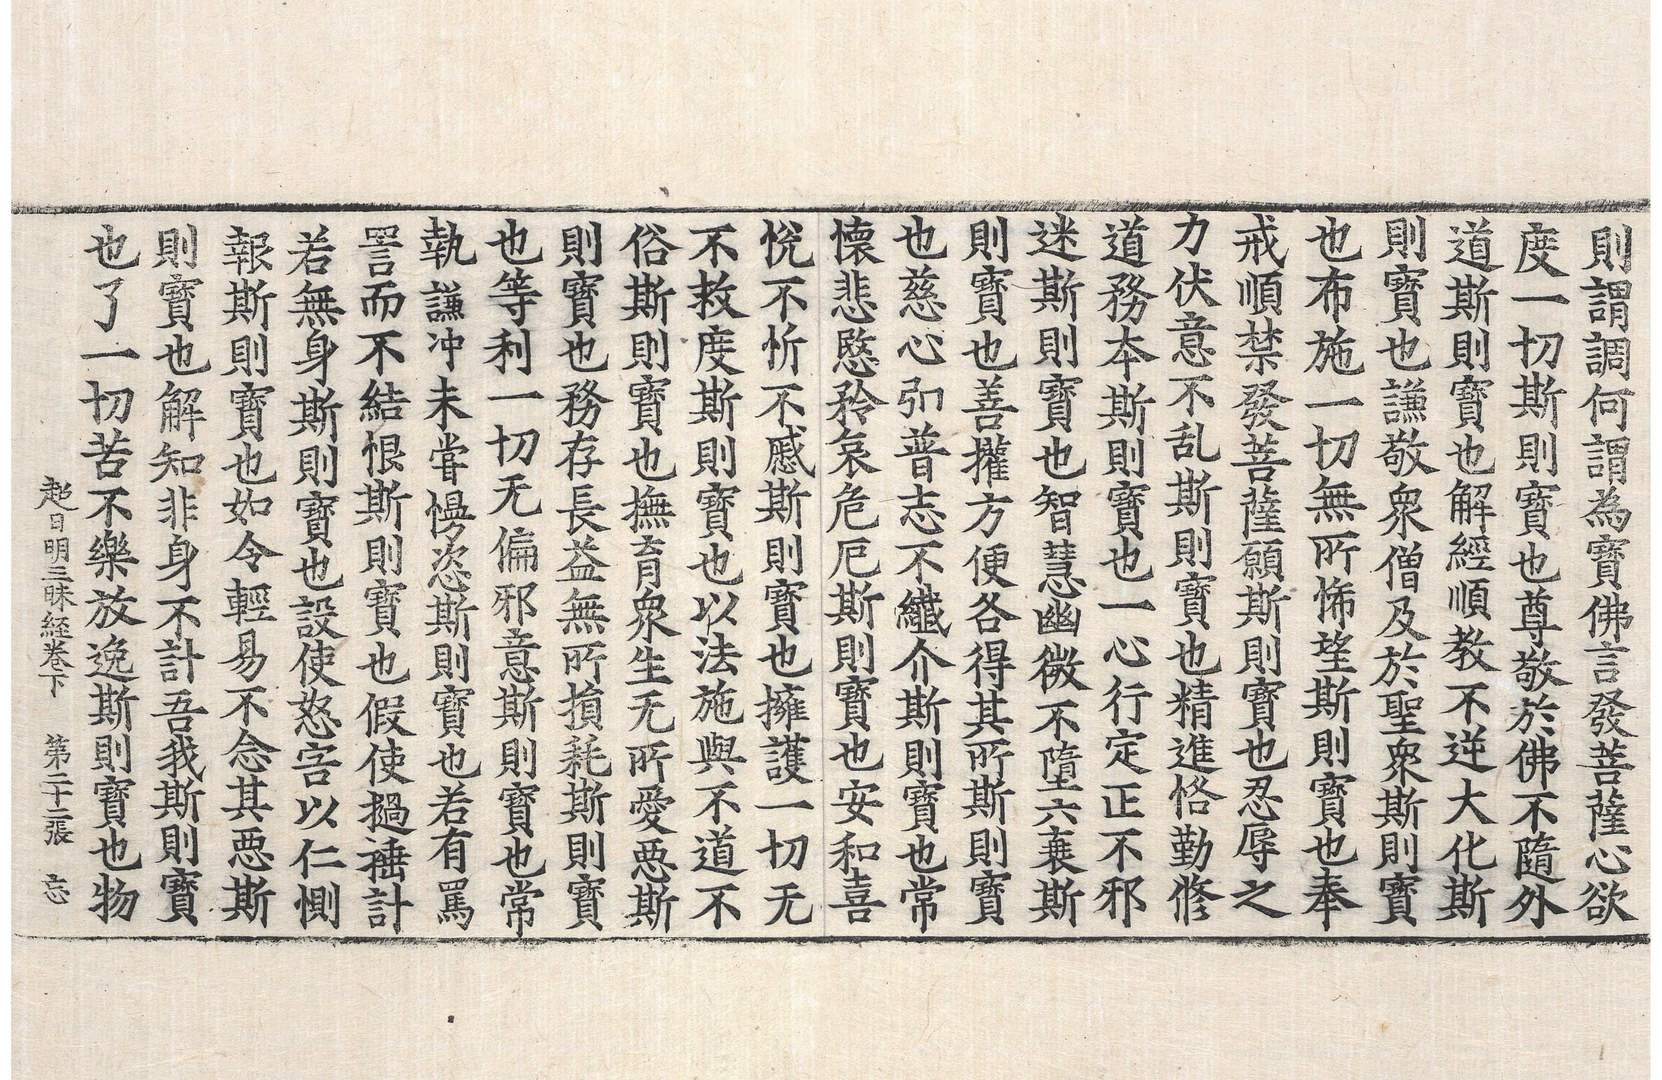 則謂調何謂為寶佛言發菩薩心欲
度一切斯則寶也尊敬於佛不隨外
道斯則寶也解經順教不逆大化斯
則寶也謙敬衆僧及於聖衆斯則寶
也布施一切無所悕望斯則寶也奉
戒順禁發菩薩願斯則寶也忍辱之
力伏意不乱斯則寶也精進恪勤修
道務本斯則寶也一心行定正不邪
迷斯則寶也智慧幽微不墮六衰斯
則寶也善權方便各得其所斯則寶
也慈心弘普志不纖介斯則寶也常
懷悲愍矜哀危厄斯則寶也安和喜
悅不忻不慼斯則寶也擁護一切无
不救度斯則寶也以法施與不道不
俗斯則寶也撫育衆生无所愛惡斯
則寶也務存長益無所損耗斯則寶
也等利一切无偏邪意斯則寶也常
執謙冲未嘗慢恣斯則寶也若有罵
詈而不結恨斯則寶也假使撾捶計
若無身斯則寶也設使怒害以仁惻
報斯則寶也如令輕易不念其惡斯
則寶也解知非身不計吾我斯則寶
也了一切苦不樂放逸斯則寶也物
超日明三昧経卷下 第二十三張 忘